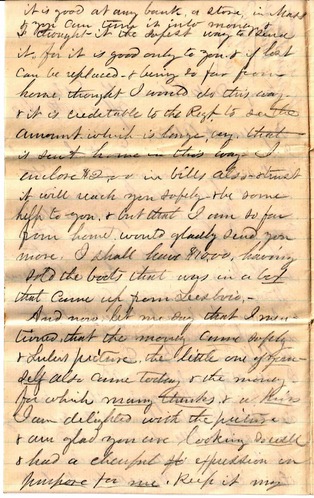 it is good at any bank, a store, in Mass
& you can turn it into money
I thought it the safest way to send
it, for it is good only to you & if lost
can be replaced & being so far from
home, thought I would do this way
& it is creditable to the Regt. to see the
amount which is large, very, that
is sent home in this way I
enclose $2,00 in bills also trust
it will reach you safely & be some
help to you, & but that I am so far
from home would gladly send you
more. I shall have $10.00, having
sold the boots that was in a box
that came up from
And now let me say that I men
tioned, that the money came safely
& picture, the little one of your
self also came today & the money
for which many thanks, & a
I am delighted with the picture
& am glad you are looking so well
& had a expression in
purpose for me. Keep it my